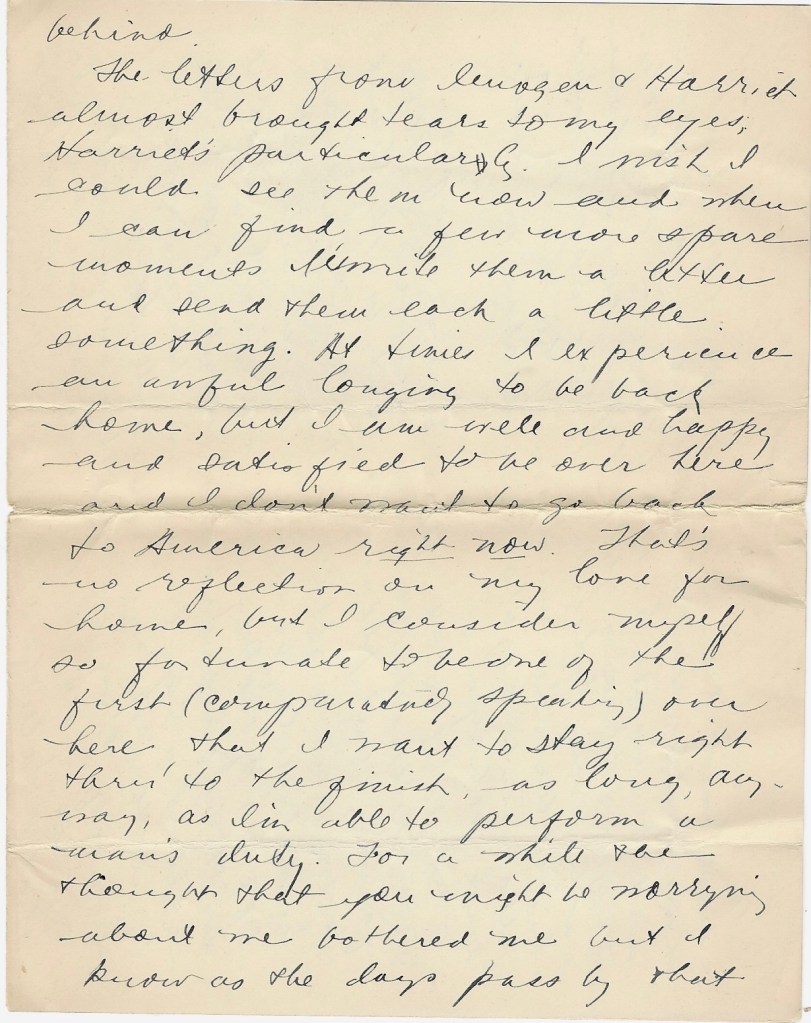 behind.
The letters from Imogen & Harriet
almost brought tears to my eyes,
Harriet's particularly. I wish I
could see them now and when
I can find a few more spare
moments I'll write them a letter
and send them each a little
something. At times I experience
an awful longing to be back
home, but I am well and happy
and satisfied to be over here
and I don't want to go back
to America right now. That's
no reflection on my love for
home, but I consider myself
so fortunate to be one of the
first (comparatively speaking) over
here that I want to stay right
thru' to the finish, as long, any-
way, as I'm able to perform a
man's duty. For a while the
thought that you might be worrying
about me bothered me but I
know as the days pass by that